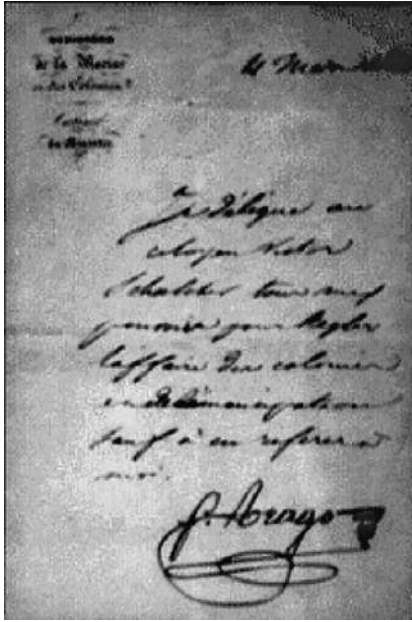 de la Marine
et des Colonies
Cabinet
du Ministre
4 Mars
Je délègue au
citoyen Victor
Schoelcher tous mes
pouvoirs pour régler
l'affaire des colonies
et de l'émancipation
sauf à en référer à
moi.
F. Arago